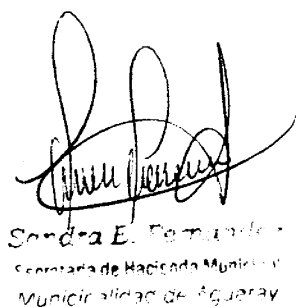 Sandra E. Fernandez
Secretaria de Hacienda Municipal
Municipalidad de Aguaray